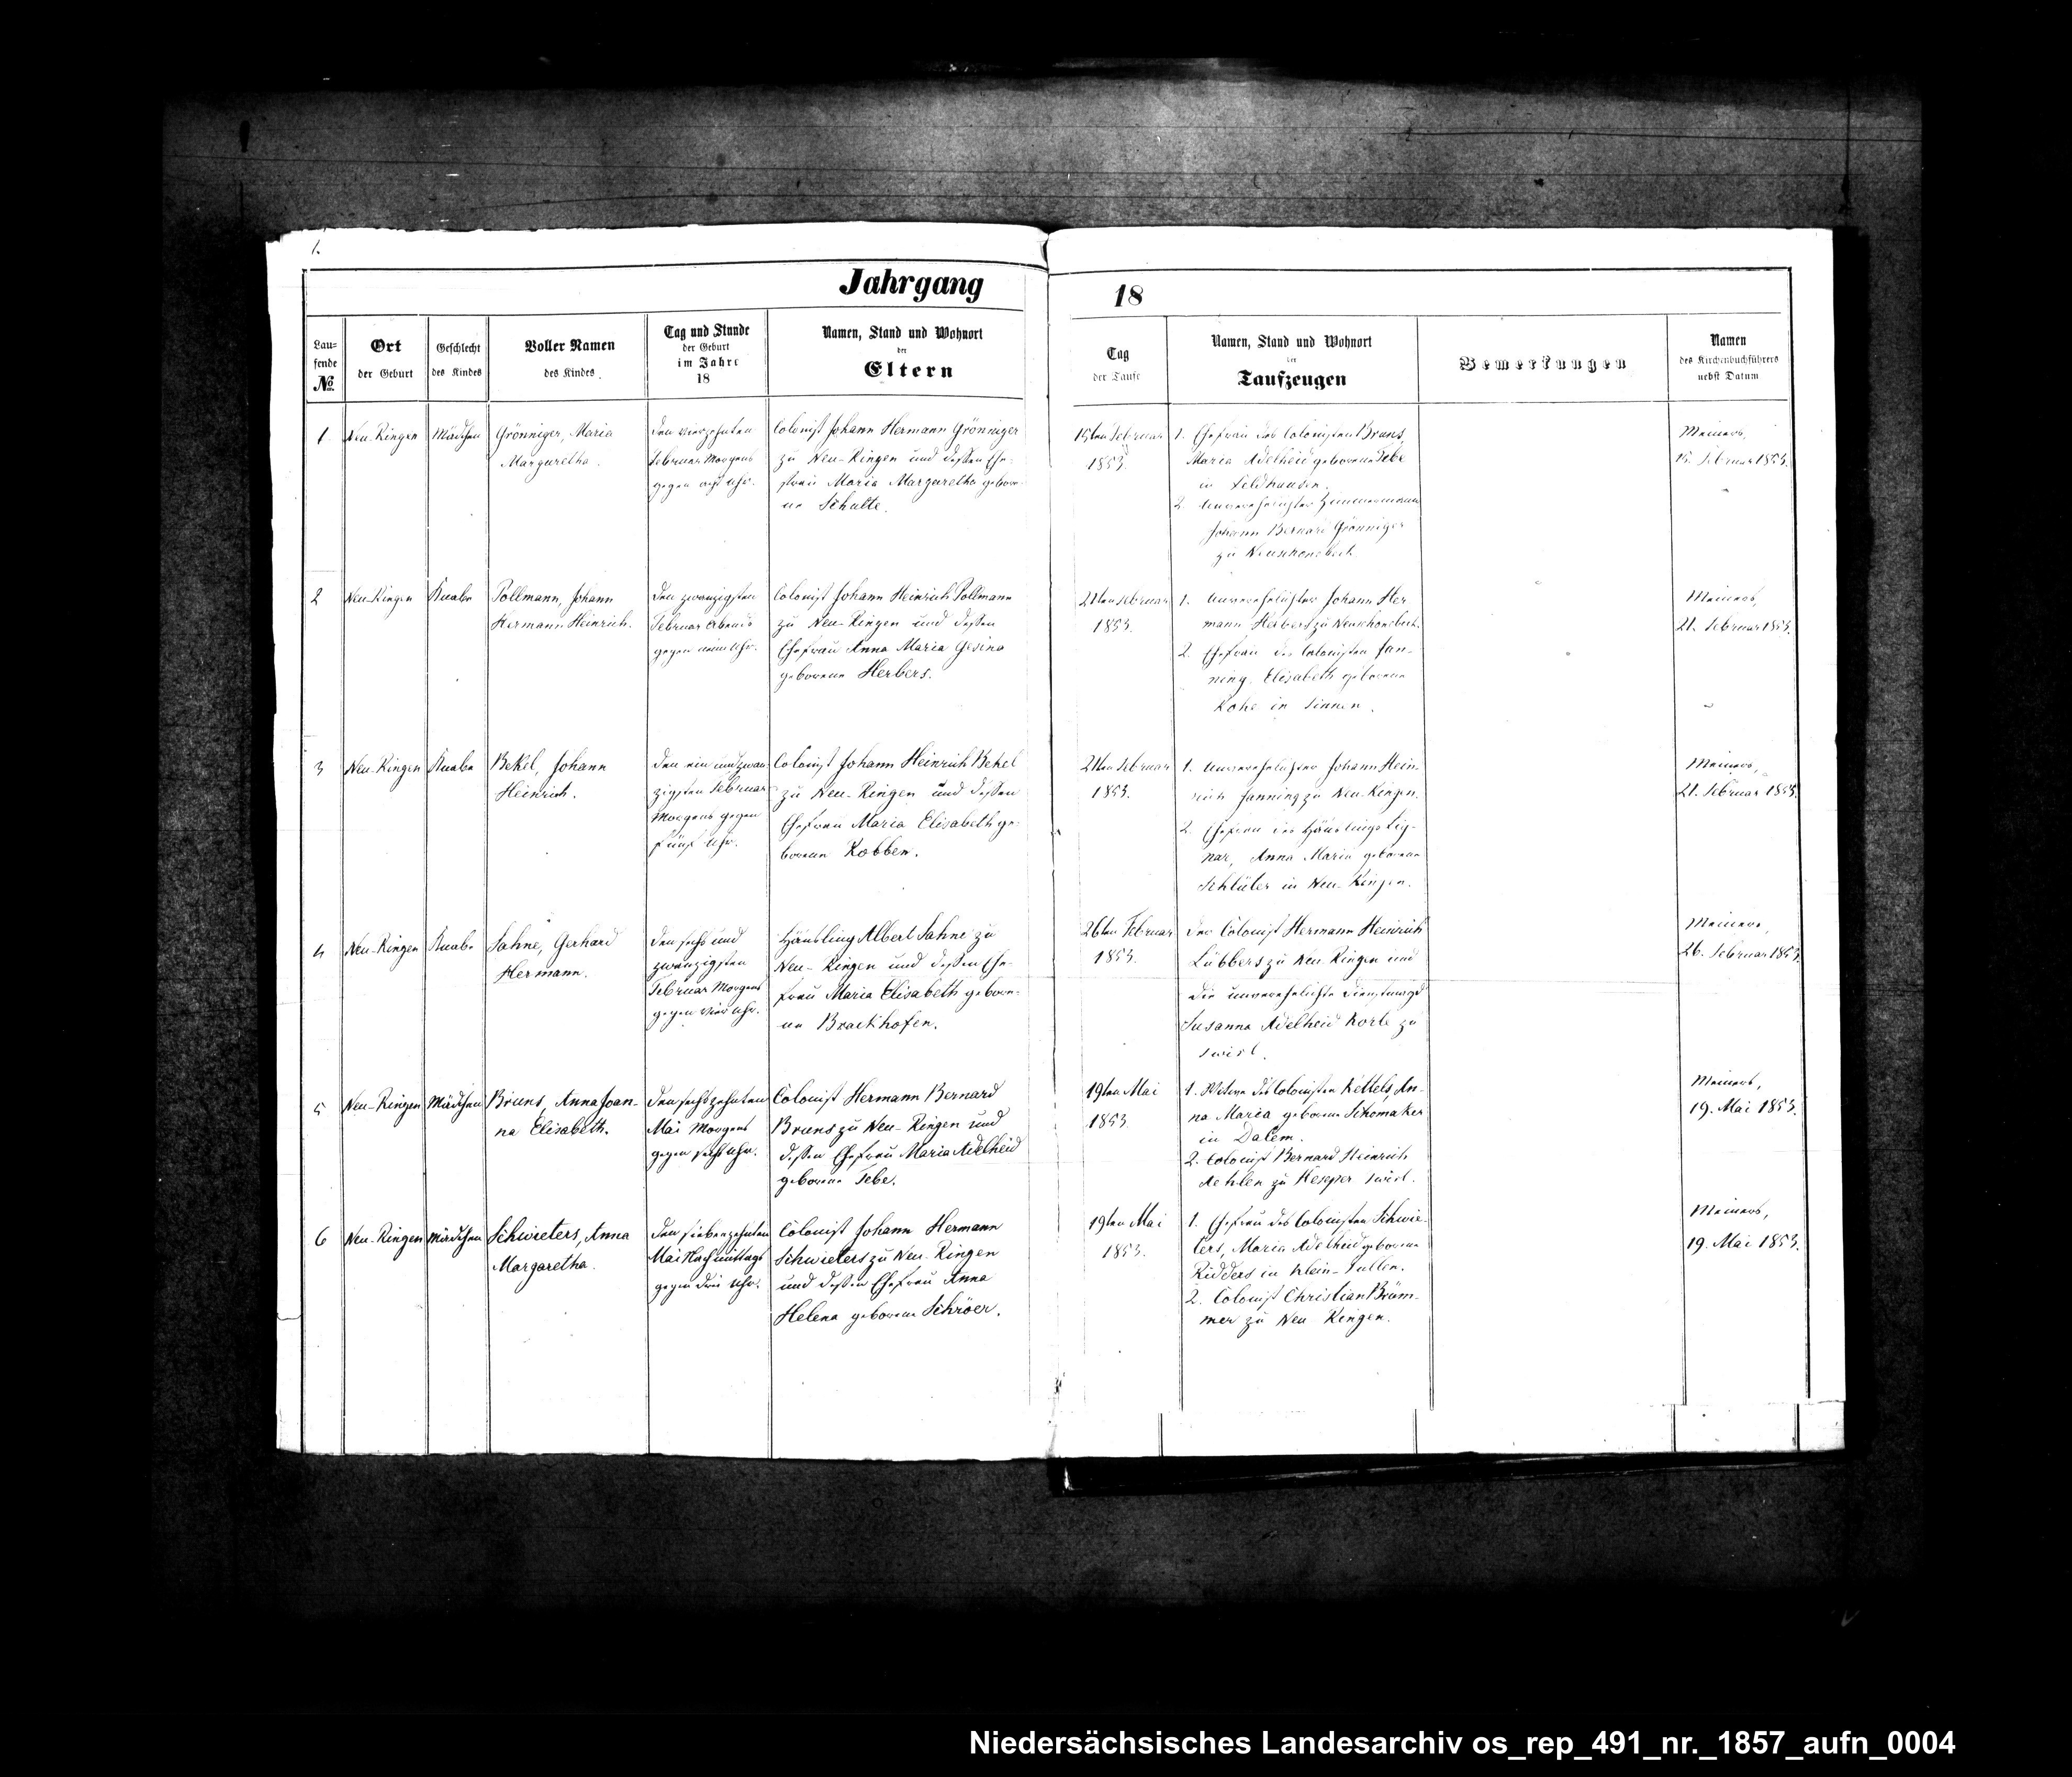 1.
Jahrgang 18
Lau-
fende
No.
Ort
der Geburt
Geschlecht
des Kindes
Voller Namen
des Kindes.
Tag und Stunde
der Geburt
im Jahre
18
Namen, Stand und Wohnort
der
Eltern
Tag
der Taufe
Namen, Stand und Wohnort
der
Taufzeugen
Bemerkungen
Namen
des Kirchenbuchführers
nebst Datum
1
Neu-Ringen
Mädchen
Grönniger, Maria
Margaretha.
den vierzehnten
Februar Morgens
gegen acht Uhr.
Colonist Johann Hermann Grönniger
zu Neu-Ringen und dessen Ehe-
frau Maria Margaretha gebore-
ne Schulte.
15ten Februar
1853.
1. Ehefrau des Colonisten Bruns,
Maria Adelheid geborene Tebe
in Feldhausen.
2. Unverehelichter Zimmermann
Johann Bernard Grönniger
zu
Meiners,
15. Februar 1853.
2
Neu-Ringen
Knabe
Pollmann, Johann
Hermann Heinrich.
den zwanzigsten
Februar Abends
gegen neun Uhr.
Colonist Johann Heinrich Pollmann
zu Neu-Ringen und dessen
Ehefrau Anna Maria Gesina
geborene Herbers.
21ten Februar
1853.
1. Unverehelichter Johann Her-
mann Herbers zu
2. Ehefrau des Colonisten Jan-
ning, Elisabeth geborene
in
Meiners,
21. Februar 1853.
3
Neu-Ringen
Knabe
Bekel, Johann
Heinrich.
den ein und zwan-
zigsten Februar
Morgens gegen
fünf Uhr.
Colonist Johann Heinrich Bekel
zu Neu-Ringen und dessen
Ehefrau Maria Elisabeth ge-
borene Robben.
21ten Februar
1853.
1. Unverehelichter Johann Hein-
rich Janning zu Neu-Ringen.
2. Ehefrau des Häuslings
Anna Maria geborene
Schlüter in Neu-Ringen.
Meiners,
21. Februar 1853.
4
Neu-Ringen
Knabe
Sahne, Gerhard
Hermann.
den sechs und
zwanzigsten
Februar Morgens
gegen vier Uhr.
Häusling Albert Sahne zu
Neu-Ringen und dessen Ehe-
frau Maria Elisabeth gebore-
ne
26ten Februar
1853.
Der Colonist Hermann Heinrich
Lübbers zu Neu-Ringen und
die unverehelichte Dienstmagd
Susanna Adelheid Korte zu
Twist.
Meiners,
26. Februar 1853.
5
Neu-Ringen
Mädchen
Bruns, Anna Joan-
na Elisabeth.
den sechszehnten
Mai Morgens
gegen sechs Uhr.
Colonist Hermann Bernard
Bruns zu Neu-Ringen und
dessen Ehefrau Maria Adelheid
geborene Tebe.
19ten Mai
1853
1. Witwe des Colonisten Kettels, An-
na Maria geborene Schomaker
in Dalem.
2. Colonist Bernard Heinrich
zu Hesper Twist.
Meiners,
19. Mai 1853.
6
Neu-Ringen
Mädchen
Schwieters, Anna
Margaretha.
den siebenzehnten
Mai Nachmittags
gegen drei Uhr.
Colonist Johann Hermann
Schwieters zu Neu-Ringen
und dessen Ehefrau Anna
Helena geborene Schröer.
19ten Mai
1853.
1. Ehefrau des Colonisten Schwie-
ters, Maria Adelheid geborene
Ridders in Klein-Fullen.
2. Colonist Christian Bröm-
mer zu Neu Ringen.
Meiners,
19. Mai 1853.
Niedersächsisches Landesarchiv os_rep_491_nr._1857_aufn_0004